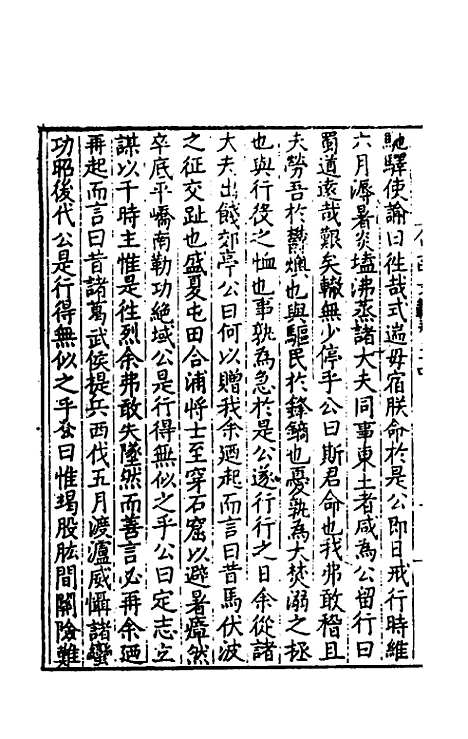 馳驛使諭曰徃哉式遄毋宿朕命於是公即日戒行時維
六月溽暑炎熻沸蒸諸大夫同事東土者咸為公留行曰
蜀道遠哉艱矣轍無少停乎公曰斯君命也我弗敢稽且
夫勞吾於鬱燠也與驅民於鋒鏑也憂孰為大焚溺之極
也與行役之恤也事孰為急於是公遂行行之日余從諸
大夫出餞郊亭公曰何以贈我余廼起而言曰昔馬伏波
之征交趾也盛夏屯田合浦將士至穿石窟以避暑瘴然
卒底平嶠南勒功絕域公是行得無似之乎公曰定志立
謀以干時主惟是徃烈余弗敢失墜然而善言必再余廼
再起而言曰昔諸葛武侯提兵西伐五月渡瀘威懾諸蠻
功昭後代公是行得無似之乎公曰惟竭股肱間關險難